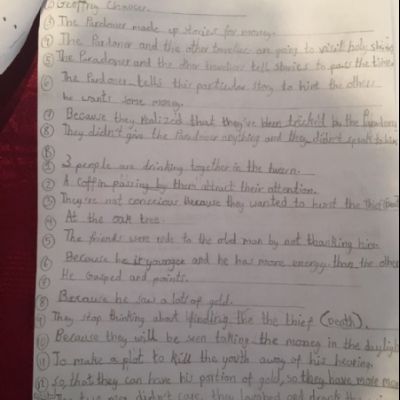 Geoffry Chaucer.
③ The Pardoner made up stories for money.
④ The Pardoner and the other traveller are going to visit holy shrine
⑤ The Paradoner and the other travellers tell stories to pass the time
⑥ The Pardoner tells this particular story to hint the others
he wants some money.
⑦ Because they realized that they've been tricked by the Pardoner
⑧ They didn't give the Pardoner anything and they didn't speak to him
Ⓑ
① 3 people are drinking together in the tavern.
② A coffin passing by them attract their attention.
③ They're not conscious because they wanted to hunt the thief
④ At the oak tree.
⑤ The friends were rude to the old man by not thanking him.
⑥ Because he is younger and he has more energy than the other
⑦ He gasped and points.
⑧ Because he saw a lot of gold.
⑨ They stop thinking about finding the the thief (Death).
⑩ Because they will be seen taking the money in the daylight
⑪ To make a plot to kill the youth away of his hearing.
⑫ So that they can have his portion of gold, so they have more
The two men didn't care, they laughed and drank the